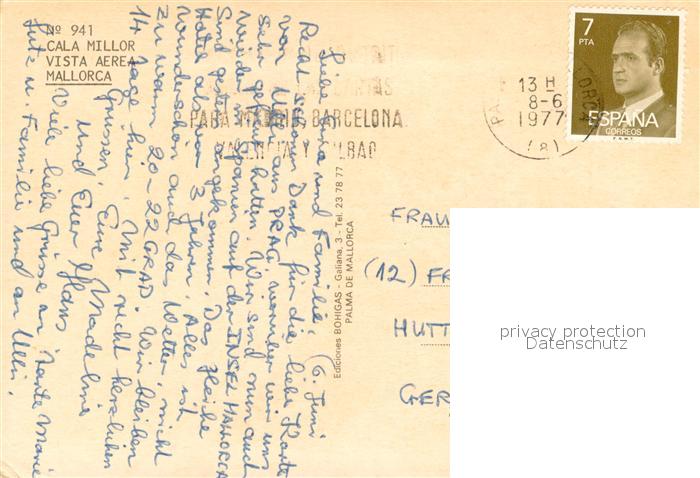 Nº 941
CALA MILLOR
VISTA AEREA
MALLORCA
PARA MADRID BARCELONA
VALENCIA Y BILBAO
7
PTA
ESPAÑA
CORREOS
F.N.M.T.
13 H
8-6
1977
(8)
Liebe und Familie, (6. Juni
Recht schönen Dank für die liebe Karte
von Ulli aus PRAG, worüber wir uns
sehr gefreut hatten. Wir sind nun auch
wieder in Spanien auf der INSEL MALLORCA
Sind gestern angekommen. Das gleiche
Hotel als vor 3 Jahren. Alles ist
Wunderschön auch das Wetter, nicht
zu warm 20-22 GRAD. Wir bleiben
14 Tage hier. Mit recht herzlichen
Grüssen, Eure Madeline
und Euer Hans
Viele liebe Grüsse an Tante Marie
Jutz u. Familie und an Ulli.
Ediciones BOHIGAS - Galiana, 3 - Tel. 23 78 77
PALMA DE MALLORCA
FRAU
(12) FR
HUTT
GER
privacy protection
Datenschutz